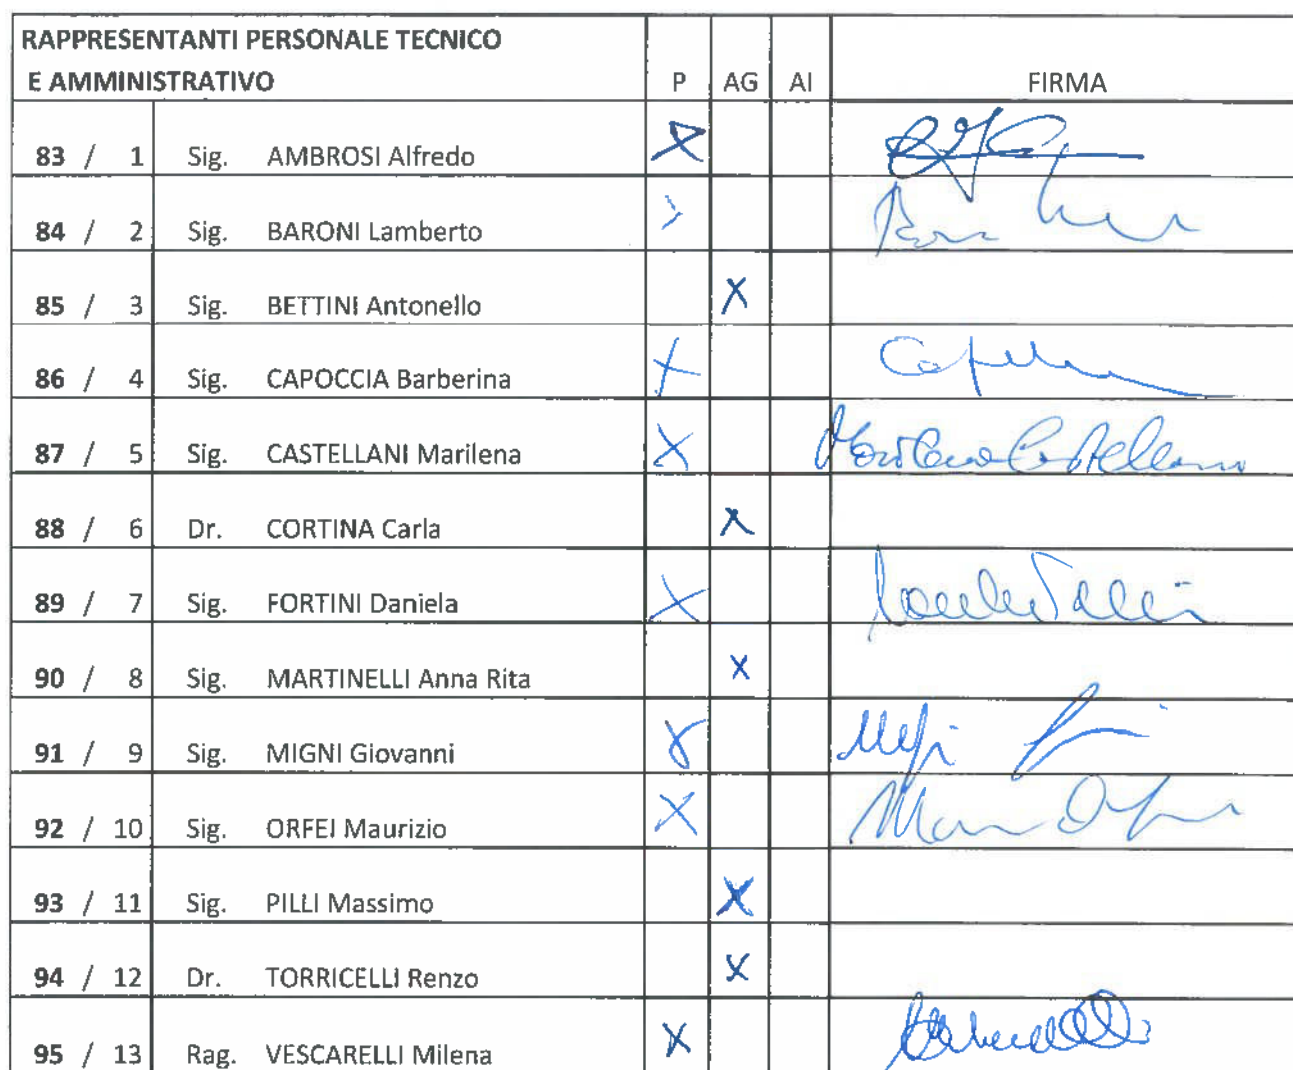 RAPPRESENTANTI PERSONALE TECNICO
E AMMINISTRATIVO P AG AI FIRMA
83 / 1 Sig. AMBROSI Alfredo X
84 / 2 Sig. BARONI Lamberto
85 / 3 Sig. BETTINI Antonello X
86 / 4 Sig. CAPOCCIA Barberina X
87 / 5 Sig. CASTELLANI Marilena X Marilena Castellani
88 / 6 Dr. CORTINA Carla X
89 / 7 Sig. FORTINI Daniela X
90 / 8 Sig. MARTINELLI Anna Rita X
91 / 9 Sig. MIGNI Giovanni X
92 / 10 Sig. ORFEI Maurizio X
93 / 11 Sig. PILLI Massimo X
94 / 12 Dr. TORRICELLI Renzo X
95 / 13 Rag. VESCARELLI Milena X